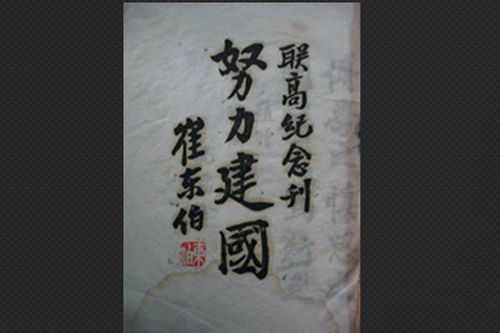 联高紀念刊
努力建國
崔东伯